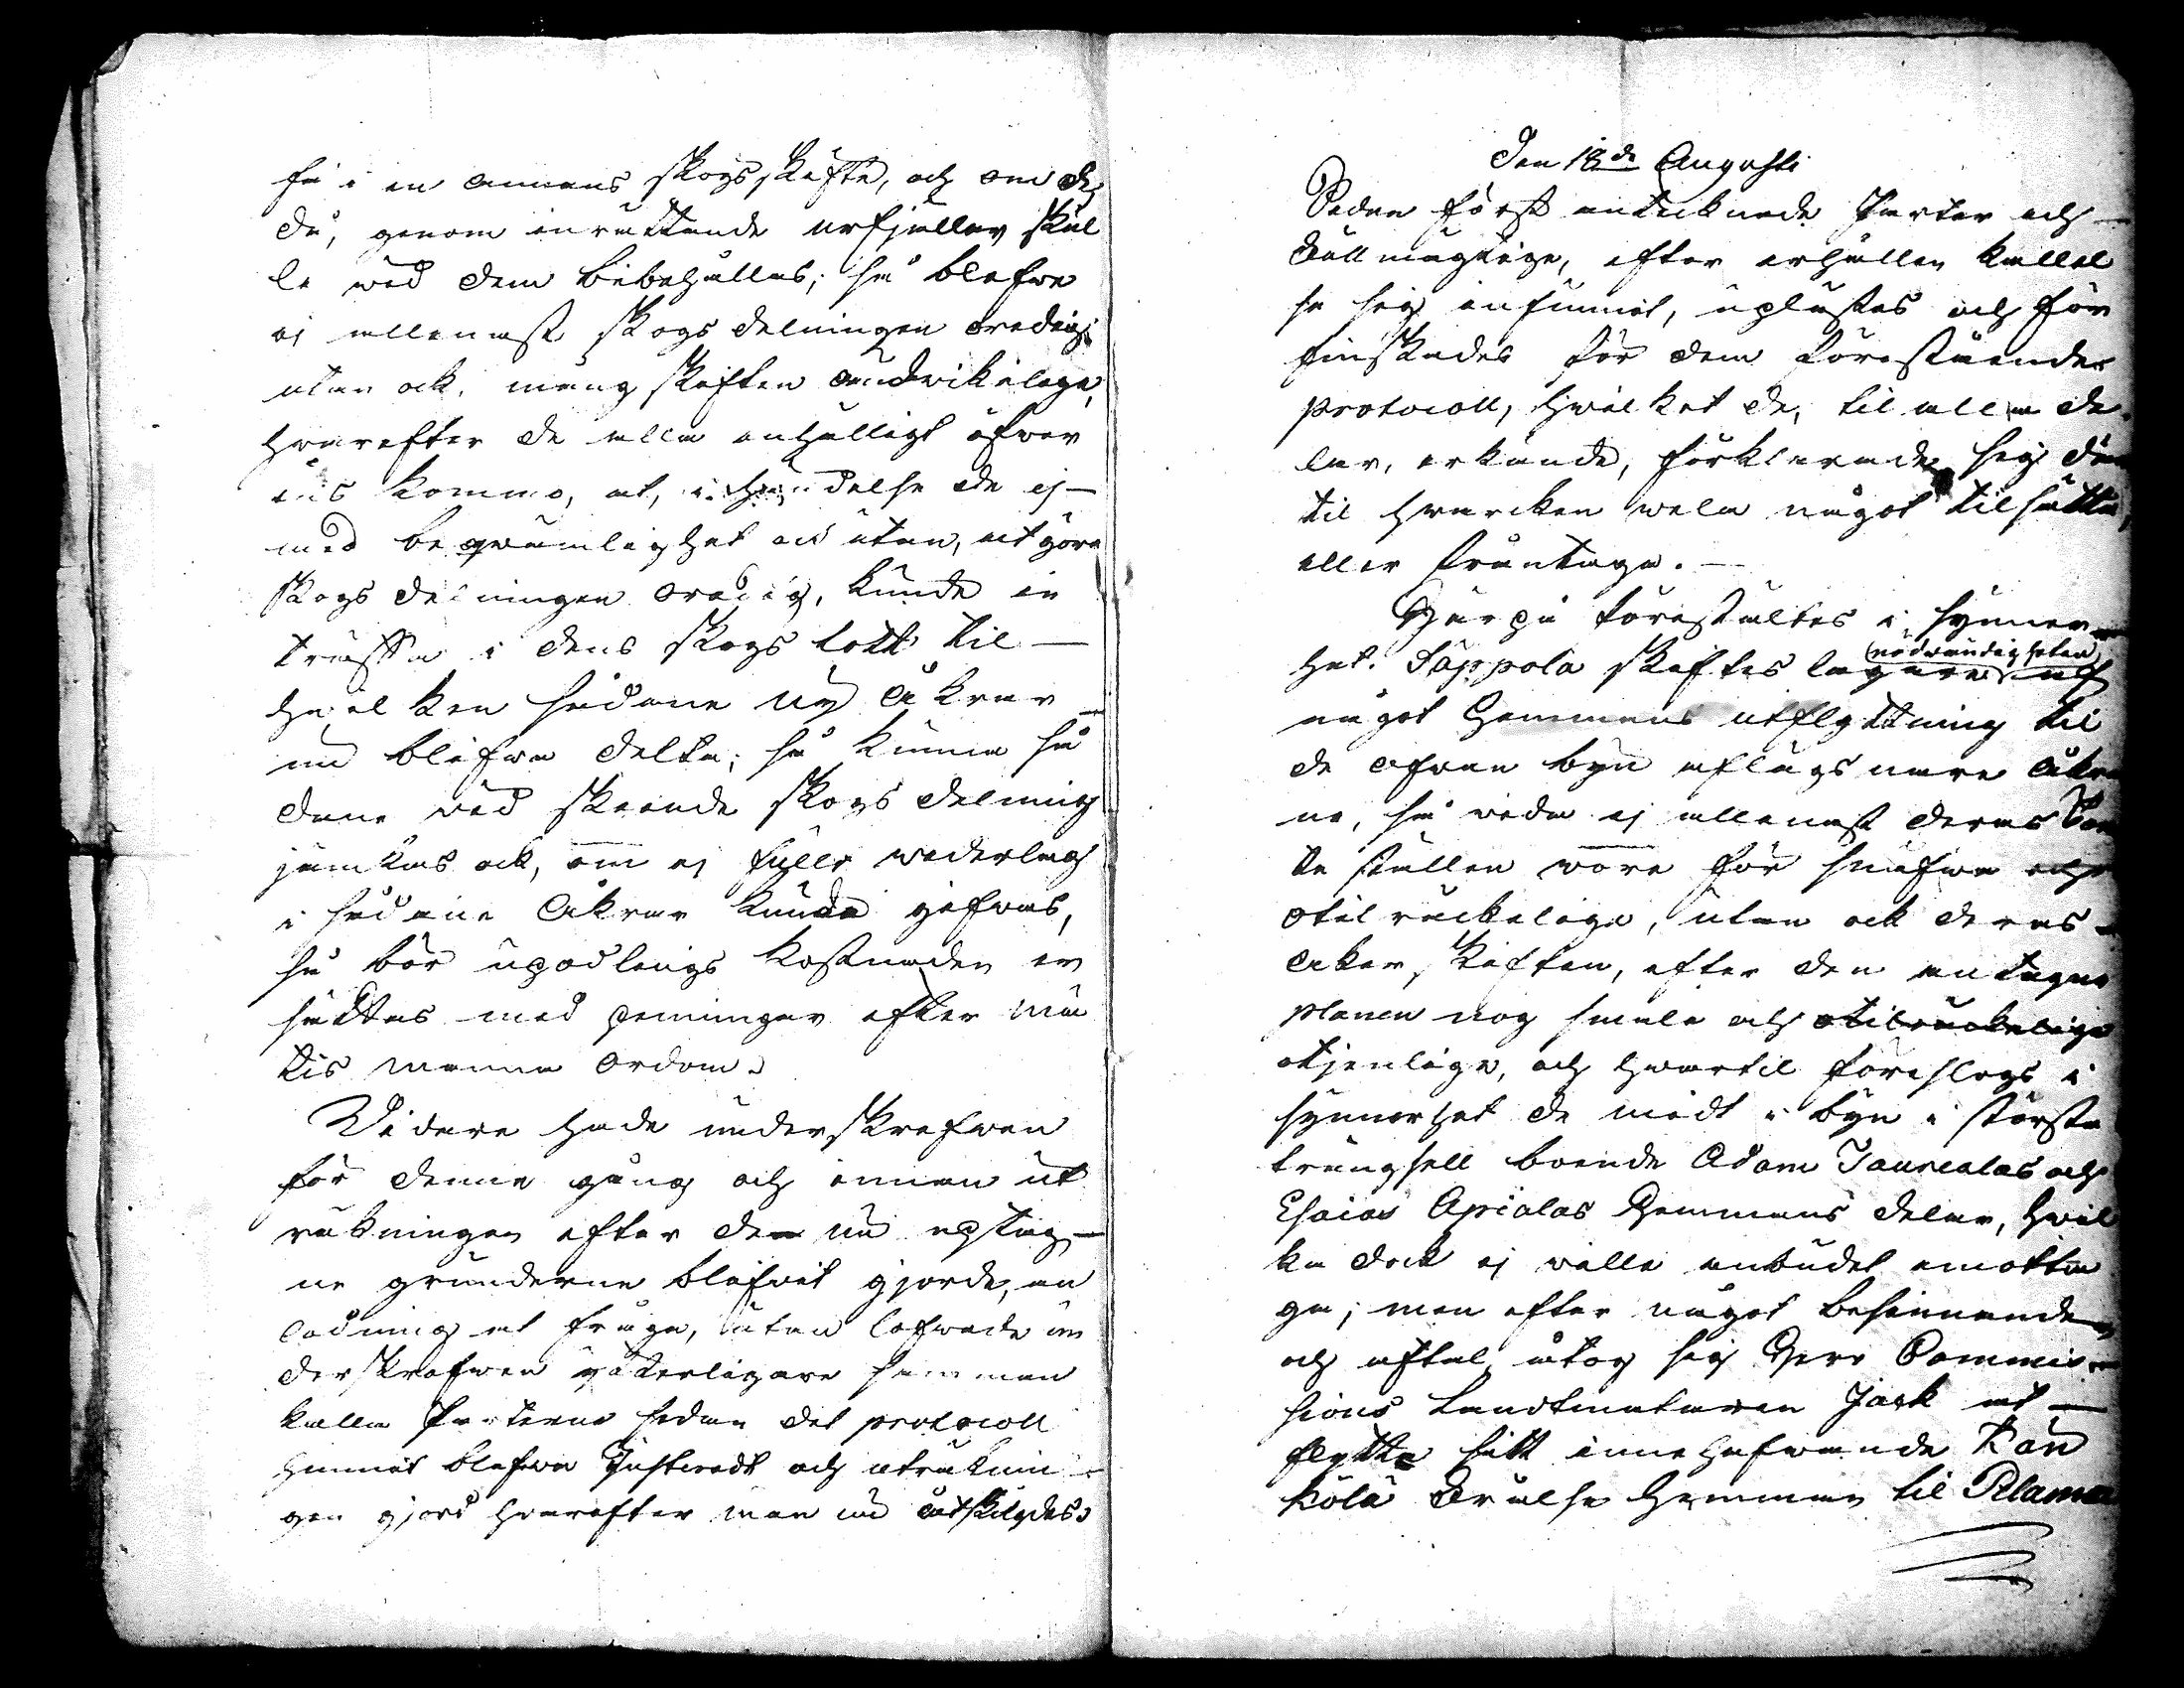 så i en annans skogs skifte, och om de
då, genom inrättande urfjellar skul
le wid dem bibehållas; så blefwe
ej allenast skogs delningen oredig
utan ock, mång skiften oundwikelige,
hwarefter de alla enhälligt öfwer
ens kommo, at, i händelse de ej —
med beqwämlighet och utan, at göra
skogs delningen oredig, kunde in
träffa i dens skogs lott til —
hwilken sådane ny åkrar
nu blifwa delte; så kunna så
dane wid skeende skogs delning
jemkas ock, om ej fyllt wederlag
i sådane åkrar kunde gifwas,
så bör upodlings kostnaden er
sättas med penningar efter mä
tis manna ordom.
Widare hade underskrefwen
för denna gång och innan ut
räkningen efter de nu uptag-
ne grunderne blifwit gjorde, an
ledning at fråga, utan lofwade un
derskrefwen ytterligare samman
kalla Parterne sedan det protocoll
hunnit blifwa Justeradt och uträknin
gen gjord hwarefter man nu åtskildes.

Den 18de Augusti
Sedan först antecknade Parter och
Fullmägtige, efter erhållen kallel
se sig infunnit, uplästes och för
finskades för dem förestående
protocoll, hwilket de, til alla de
lar, erkände, förklarade sig där
til hwarcken wela något tilsätta,
eller fråntaga. —
Härpå föreställtes i synner
het Säppola skiftes lagare nödwändigheten af
något Hemmans utflyttning til
de ofwan byn aflägsnare åkra
ne, så wida ej allenast deras Tom
te ställen wore för snäfwa och
otilräckelige, utan ock deras
Åker skiften, efter den antagne
planen nog smala och otilräckelige
otjenlige, och hwartil föreslogs i
synnerhet de midt i byn i största
trångsell boende Adam Jaurealas och
Esaias Apialas Hemmans delar, hwil
ka dock ej wille anbudet emotta
ga; men efter något besinnande
och aftal, åtog sig Herr Commis
sions Landtmätaren Jack at
flytta sitt innehafwande Kan
kola Frälse Hemman til Pelama